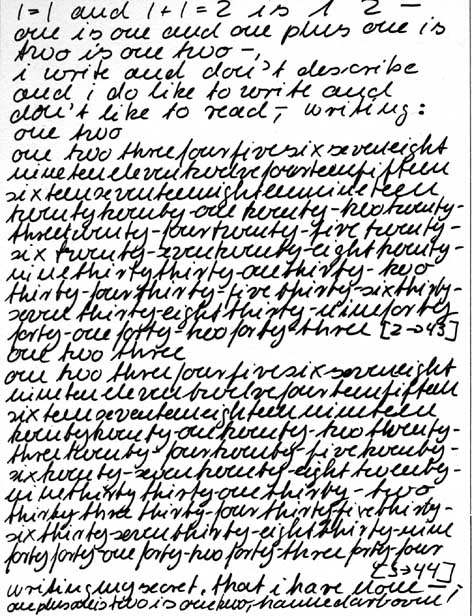 1=1 and 1+1=2 is 1 2 —
one is one and one plus one is
two is one two —,
i write and don't describe
and i do like to write and
don't like to read,— writing:
one two
one two threefourfivesixseveneight
nineteneleventwelvefourteenfifteen
sixteenseventeeneighteennineteen
twentytwenty-onetwenty-twotwenty-
threetwenty-fourtwenty-fivetwenty-
six twenty-seventwenty-eighttwenty-
ninethirtythirty-onethirty-two
thirty-fourthirty-fivethirty-sixthirty-
seventhirty-eightthirty-nineforty
forty-oneforty-twoforty-three [2→43]
one two three
one two threefourfivesixseveneight
nineteneleventwelvefourteenfifteen
sixteenseventeeneighteennineteen
twentytwenty-onetwenty-twotwenty-
threetwenty-fourtwenty-fivetwenty-
sixtwenty-seventwenty-eighttwenty-
ninethirtythirty-onethirty-two
thirtythreethirty-fourthirtyfivethirty-
sixthirty-seventhirty-eightthirty-nine
fortyforty-oneforty-twoforty-threefortyfour
[3→44]
writing my secret, that i have none —;
oneplusoneistwoisonetwo, hannedarboven!